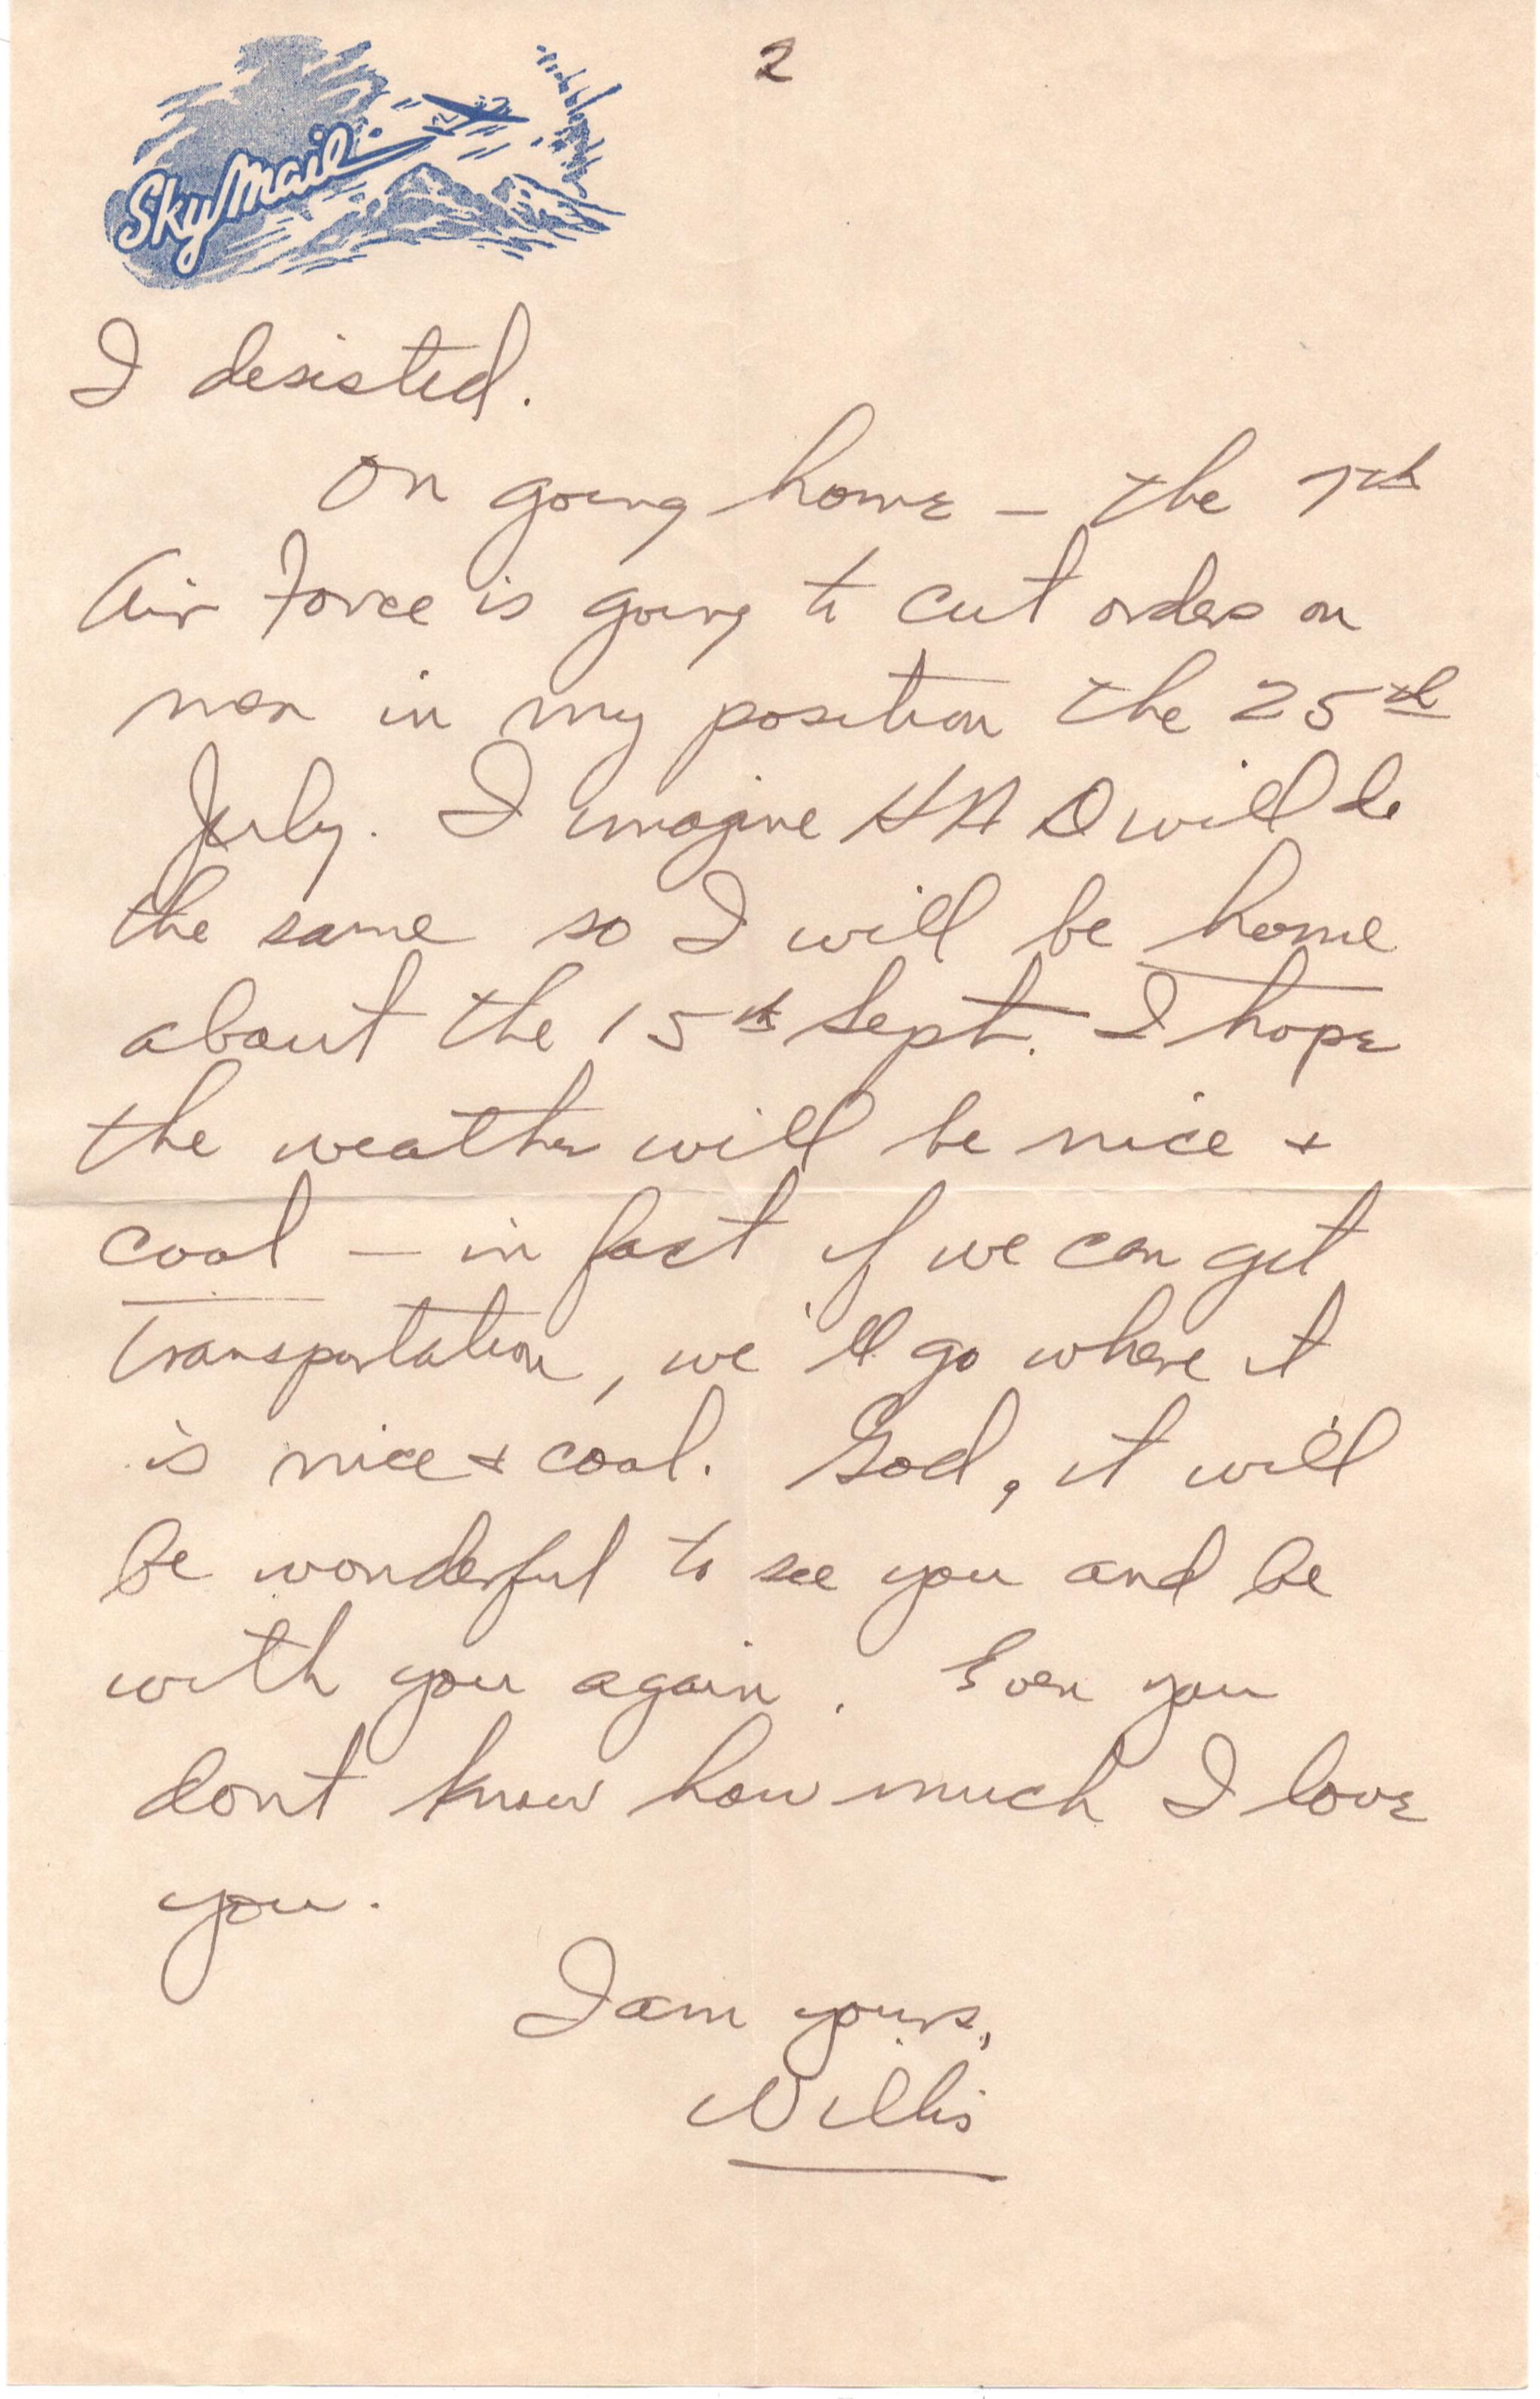 2
Sky Mail
I desisted.
On going home – the 7th
Air Force is going to cut orders on
men in my position the 25th
July. I imagine HAD will do
the same so I will be home
about the 15th Sept. I hope
the weather will be nice +
cool – in fact if we can get
transportation, we'll go where it
is nice + cool. God, it will
be wonderful to see you and be
with you again. Even you
dont know how much I love
you.
I am yours,
Willis